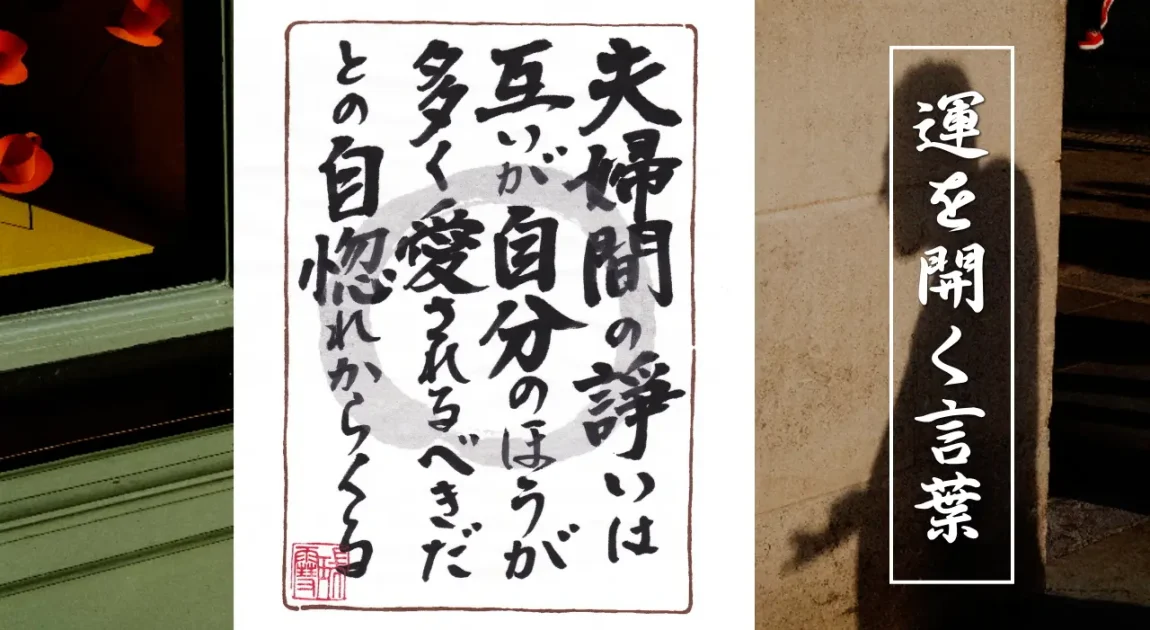 夫婦間の諍いは
互いが自分のほうが
多く愛されるべきだ
との自惚れからくる
運を開く言葉